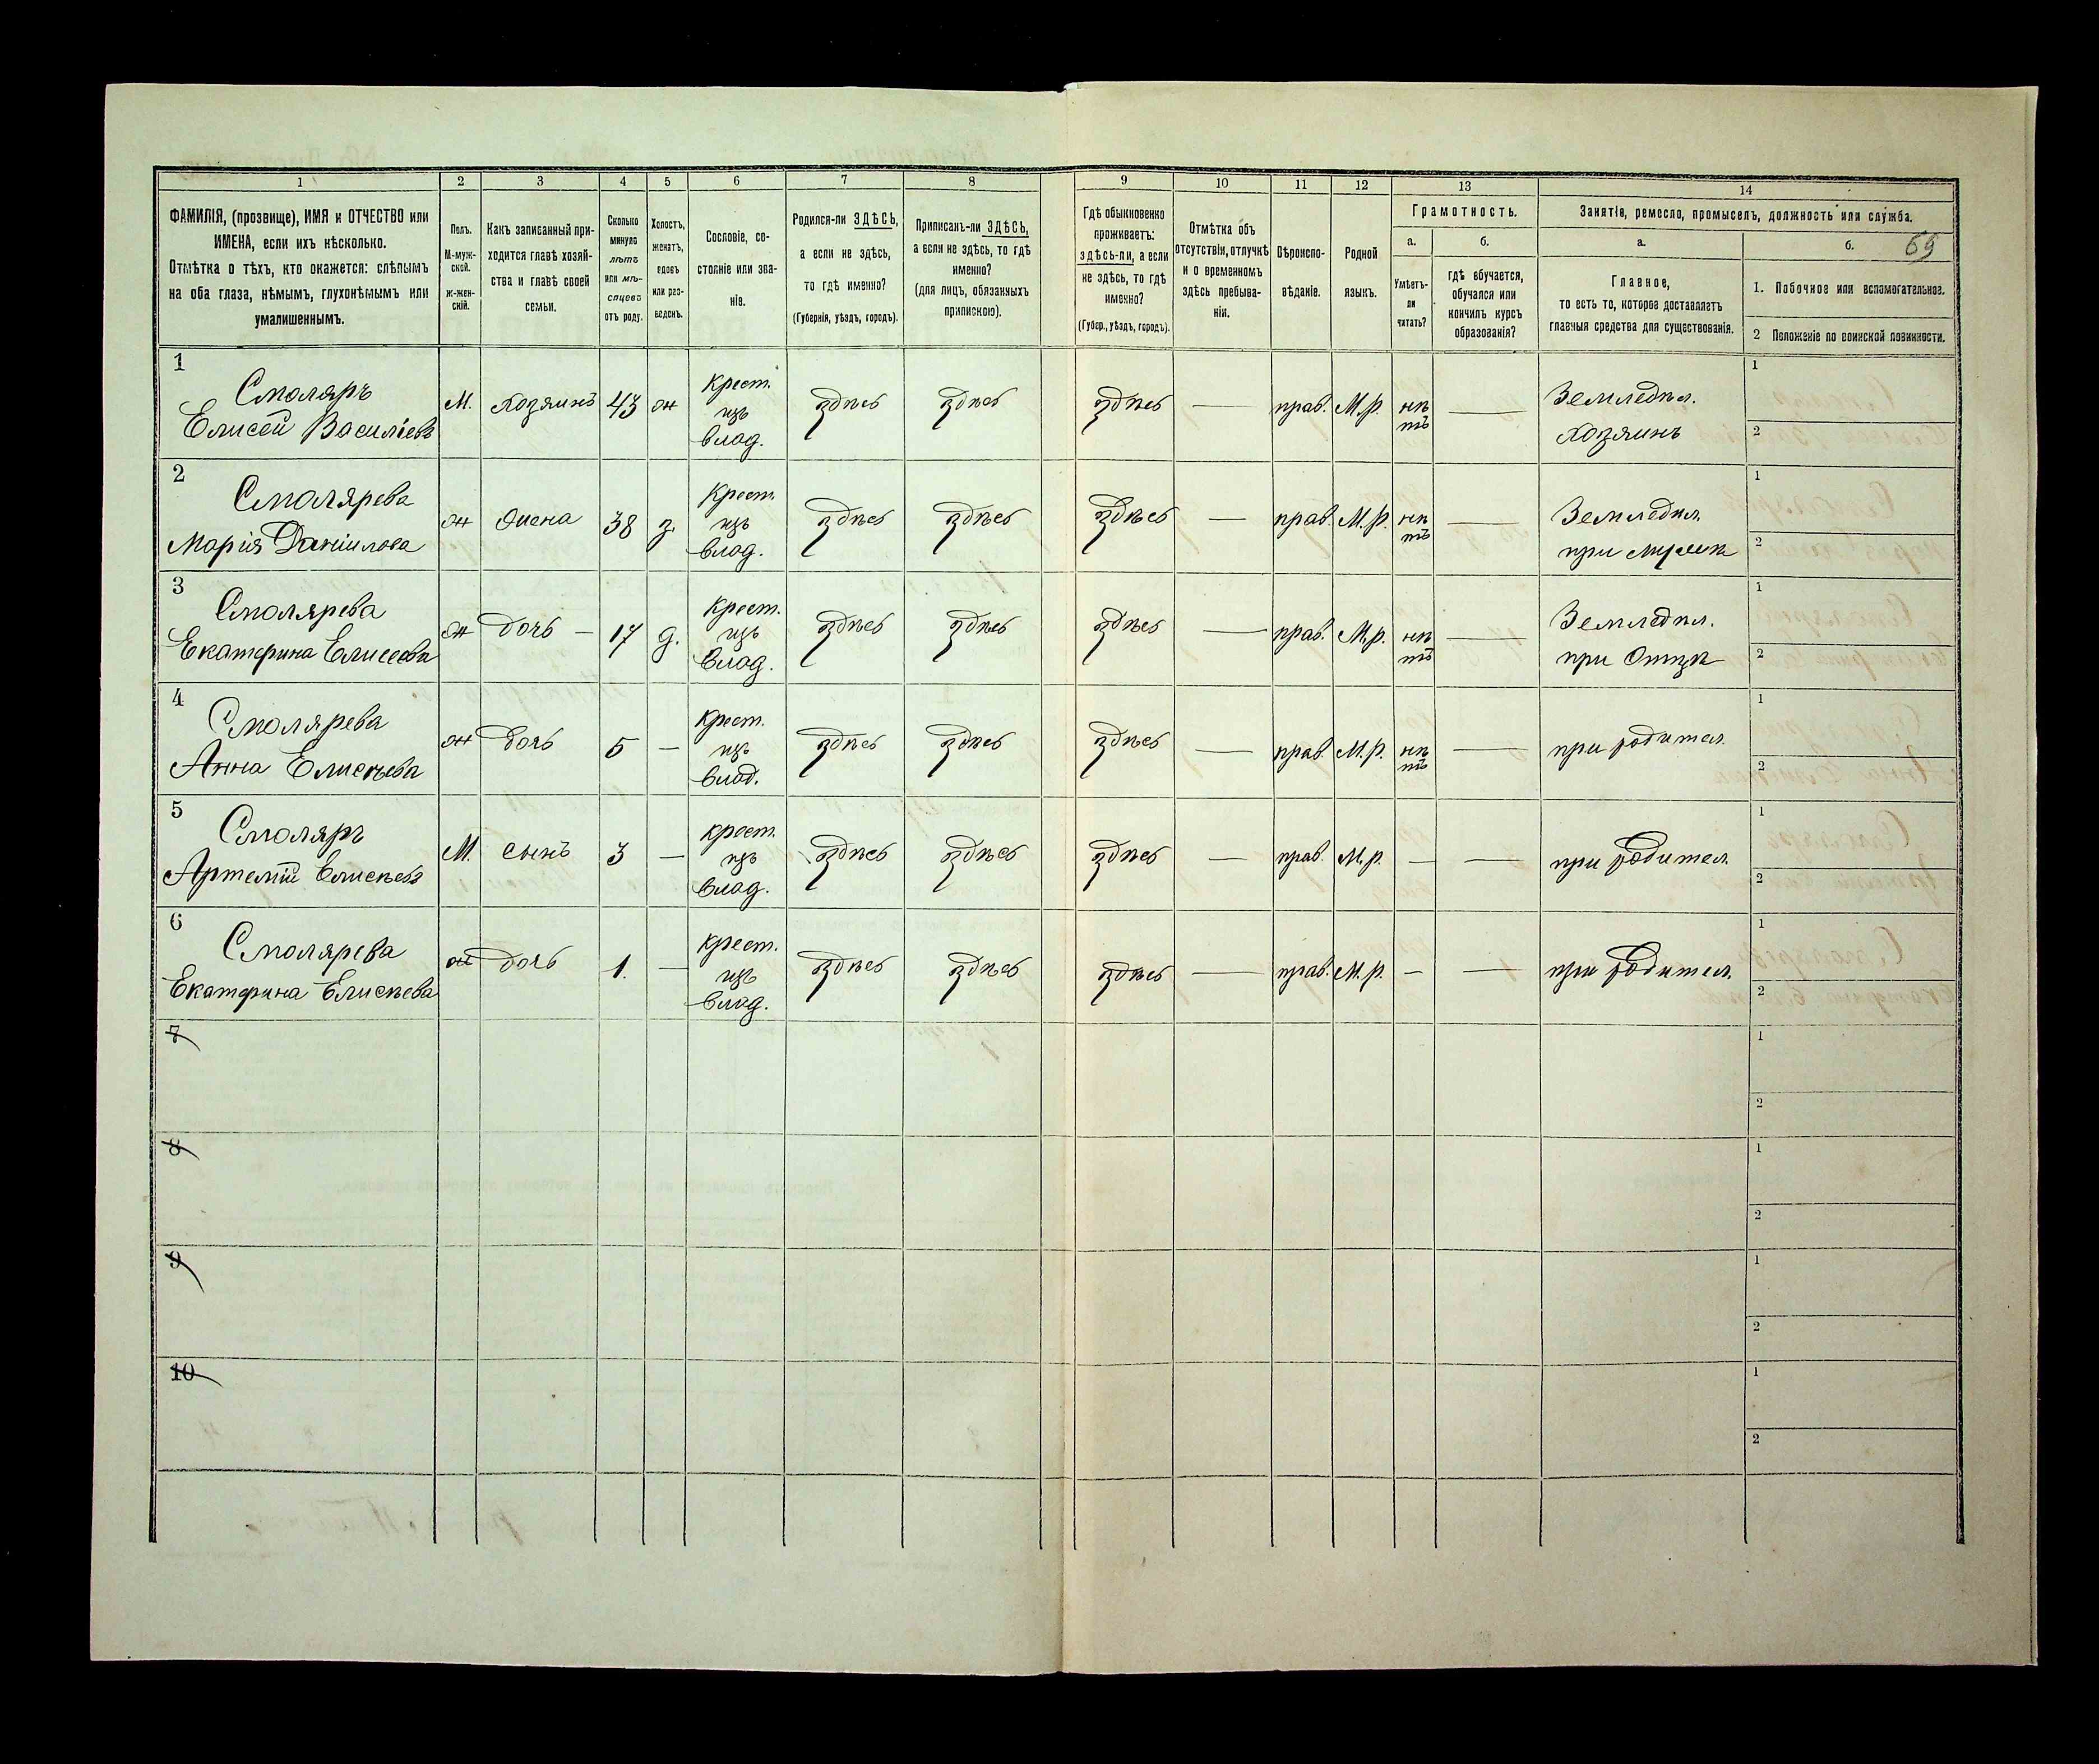 1 2 3 4 5 6 7 8 9 10 11 12 13 14
69
ФАМИЛІЯ, (прозвище), ИМЯ и ОТЧЕСТВО или
ИМЕНА, если ихъ нѣсколько.
Отмѣтка о тѣхъ, кто окажется: слѣпымъ
на оба глаза, нѣмымъ, глухонѣмымъ или
умалишеннымъ.
Полъ.
М-муж-
ской.
ж-жен-
скій.
Какъ записанный при-
ходится главѣ хозяй-
ства и главѣ своей
семьи.
Сколько
минуло
лѣтъ
или мѣ-
сяцевъ
отъ роду.
Холостъ,
женатъ,
вдовъ
или раз-
веденъ.
Сословіе, со-
стояніе или зва-
ніе.
Родился-ли ЗДѢСЬ,
а если не здѣсь,
то гдѣ именно?
(Губернія, уѣздъ, городъ).
Приписанъ-ли ЗДѢСЬ,
а если не здѣсь, то гдѣ
именно?
(для лицъ, обязанныхъ
припискою).
Гдѣ обыкновенно
проживаетъ:
здѣсь-ли, а если
не здѣсь, то гдѣ
именно?
(Губер., уѣздъ, городъ).
Отмѣтка объ
отсутствіи, отлучкѣ
и о временномъ
здѣсь пребыва-
ніи.
Вѣроиспо-
вѣданіе.
Родной
языкъ.
Грамотность.
а.
Умѣетъ-
ли
читать?
б.
гдѣ обучается,
обучался или
кончилъ курсъ
образованія?
Занятіе, ремесло, промыселъ, должность или служба.
а.
Главное,
то есть то, которое доставляетъ
главныя средства для существованія.
б.
1. Побочное или вспомогательное.
2 Положеніе по воинской повинности.
1
Смоляръ
Елисей Василіевъ
М. Хозяинъ 43 ж
Крест.
изъ
влад.
здѣсь здѣсь здѣсь — прав. М.р.
нѣ
тъ
—
Земледѣл.
Хозяинъ
1
2
2
Смолярева
Марія Даніилова
ж Жена 38 з.
Крест.
изъ
влад.
здѣсь здѣсь здѣсь — прав. М.р.
нѣ
тъ
—
Земледѣл.
при мужѣ
1
2
3
Смолярева
Екатерина Елисеева
ж дочь — 17 д.
Крест.
изъ
влад.
здѣсь здѣсь здѣсь — прав. М.р.
нѣ
тъ
—
Земледѣл.
при Отцѣ
1
2
4
Смолярева
Анна Елисѣева
ж дочь 5 —
Крест.
изъ
влад.
здѣсь здѣсь здѣсь — прав. М.р.
нѣ
тъ
—
при родител.
1
2
5
Смоляръ
Артемій Елисѣевъ
М. сынъ 3 —
крест.
изъ
влад.
здѣсь здѣсь здѣсь — прав. М.р. — —
при родител.
1
2
6
Смолярева
Екатерина Елисѣева
ж дочь 1. —
крест.
изъ
влад.
здѣсь здѣсь здѣсь — прав. М.р. — —
при родител.
1
2
7
1
2
8
1
2
9
1
2
10
1
2